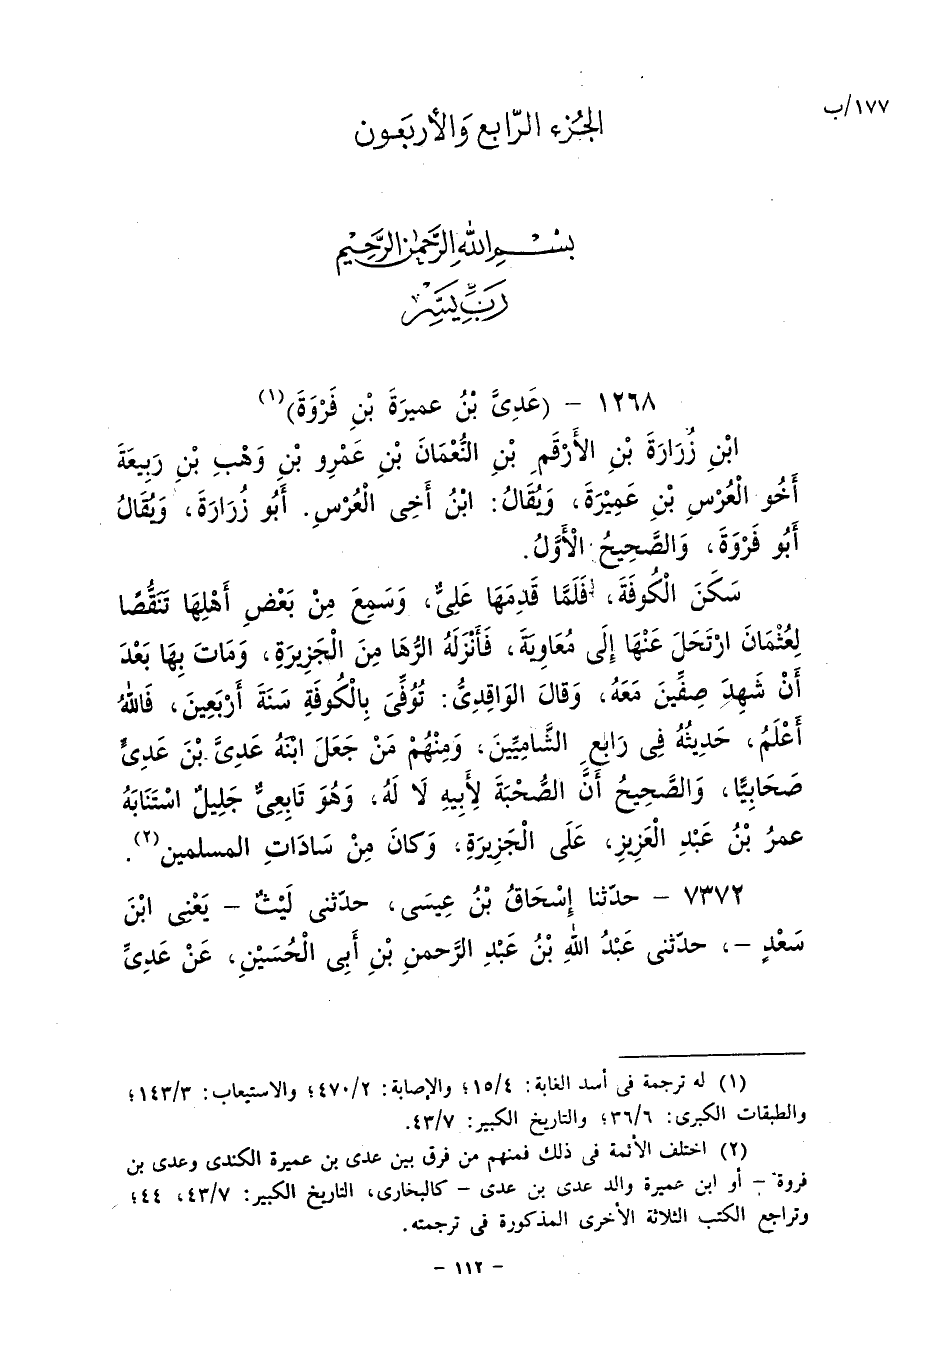 ١٧٧/ب
الجُزء الرَّابع وَالأربَعون
بِسْمِ اللهِ الرَّحمٰنِ الرَّحِيْمِ
رَبِّ يَسِّرْ
١٢٦٨ – (عَدِىَّ بْنُ عميرَةَ بْنِ فَرْوَةَ)(١)
ابْنِ زُرَارَةَ بْنِ الأَرْقَمِ بْنِ النُّعْمَانَ بْنِ عَمْرِو بْنِ وَهْبِ بْنِ رَبِيعَةَ
أَخُو الْعُرْسِ بْنِ عَمِيْرَةَ، وَيُقَالُ: ابْنُ أَخِى الْعُرْسِ. أَبُو زُرَارَةَ، وَيُقَالُ
أَبُو فَرْوَةَ، وَالصَّحِيحُ الْأَوَّلُ.
سَكَنَ الْكُوفَةَ، فَلَمَّا قَدِمَهَا عَلِىٌّ، وَسَمِعَ مِنْ بَعْضِ أَهْلِهَا تَنَقُّصًا
لِعُثْمَانَ ارْتَحَلَ عَنْهَا إِلَى مُعَاوِيَةَ، فَأَنْزَلَهُ الرُّهَا مِنَ الْجَزِيرَةِ، وَمَاتَ بِهَا بَعْدَ
أَنْ شَهِدَ صِفِّينَ مَعَهُ، وَقَالَ الوَاقِدِىُّ: تُوُفِّىَ بِالْكُوفَةِ سَنَةَ أَرْبَعِينَ، فَاللهُ
أَعْلَمُ، حَدِيثُهُ فِى رَابِعِ الشَّامِيِّينَ، وَمِنْهُمْ مَنْ جَعَلَ ابْنَهُ عَدِىَّ بْنَ عَدِىٍّ
صَحَابِيًّا، وَالصَّحِيحُ أَنَّ الصُّحْبَةَ لِأَبِيهِ لَا لَهُ، وَهُوَ تَابِعِىٌّ جَلِيلٌ اسْتَنَابَهُ
عمرُ بْنُ عَبْدِ الْعَزِيزِ، عَلَى الْجَزِيرَةِ، وَكَانَ مِنْ سَادَاتِ المسلمين(٢).
٧٣٧٢ – حدّثنا إِسْحَاقُ بْنُ عِيسَى، حدّثنى لَيْثٌ – يَعْنِى ابْنَ
سَعْدٍ –، حدّثنى عَبْدُ اللهِ بْنُ عَبْدِ الرَّحمنِ بْنِ أَبِى الْحُسَيْنِ، عَنْ عَدِىِّ
(١) له ترجمة فى أسد الغابة: ١٥/٤؛ والإصابة: ٤٧٠/٢؛ والاستيعاب: ١٤٣/٣؛
والطبقات الكبرى: ٣٦/٦؛ والتاريخ الكبير: ٤٣/٧.
(٢) اختلف الأئمة فى ذلك فمنهم من فرق بين عدى بن عميرة الكندى وعدى بن
فروة – أو ابن عميرة والد عدى بن عدى – كالبخارى، التاريخ الكبير: ٤٣/٧، ٤٤؛
وتراجع الكتب الثلاثة الأخرى المذكورة فى ترجمته.
– ١١٢ –